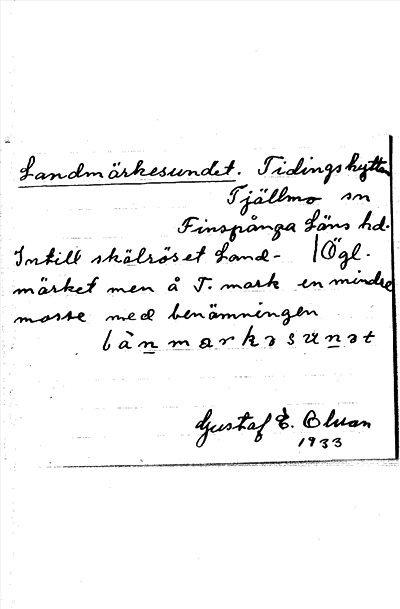 Landmärkesundet. Tidingshyttan
Tjällmo sn
Finspånga Läns hd.
Intill skälröset Land- | Ögl.
märket men å T. mark en mindre
mosse med benämningen
lànmarkəsunət
Gustaf E. Olsson
1933